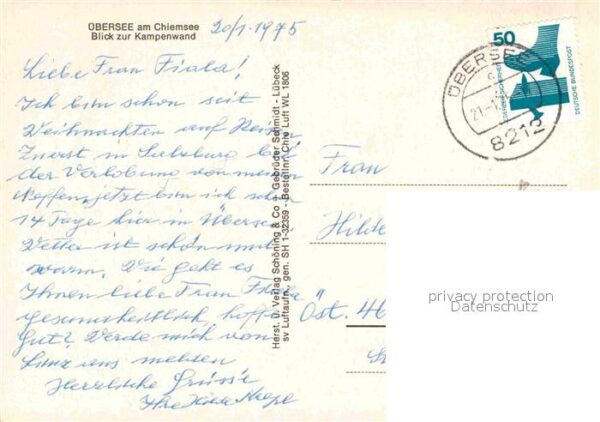 ÜBERSEE am Chiemsee
Blick zur Kampenwand
20/1. 1975
Liebe Frau Fiala!
Ich bin schon seit
Weihnachten auf Reisen
Zuerst in Salzburg bei
der Verlobung von meinem
Neffen, jetzt bin ich schon
14 Tage hier in Übersee
Wetter ist schön und
warm. Wie geht es
Ihnen liebe Frau Fiala
gesundheitlich, hoffe
Gut? Werde mich von
Linz aus melden
Herzliche Grüsse
Ihre Hilde
Herst. u. Verlag Schöning & Co + Gebrüder Schmidt - Lübeck
sv Luftaufn., gen. SH 1-32359 - Bestellnr. Chie Luft WL 1806
50
DEUTSCHE BUNDESPOST
ÜBERSEE
21.-1.
8212
Frau
Hilde
Öst. 46
privacy protection
Datenschutz